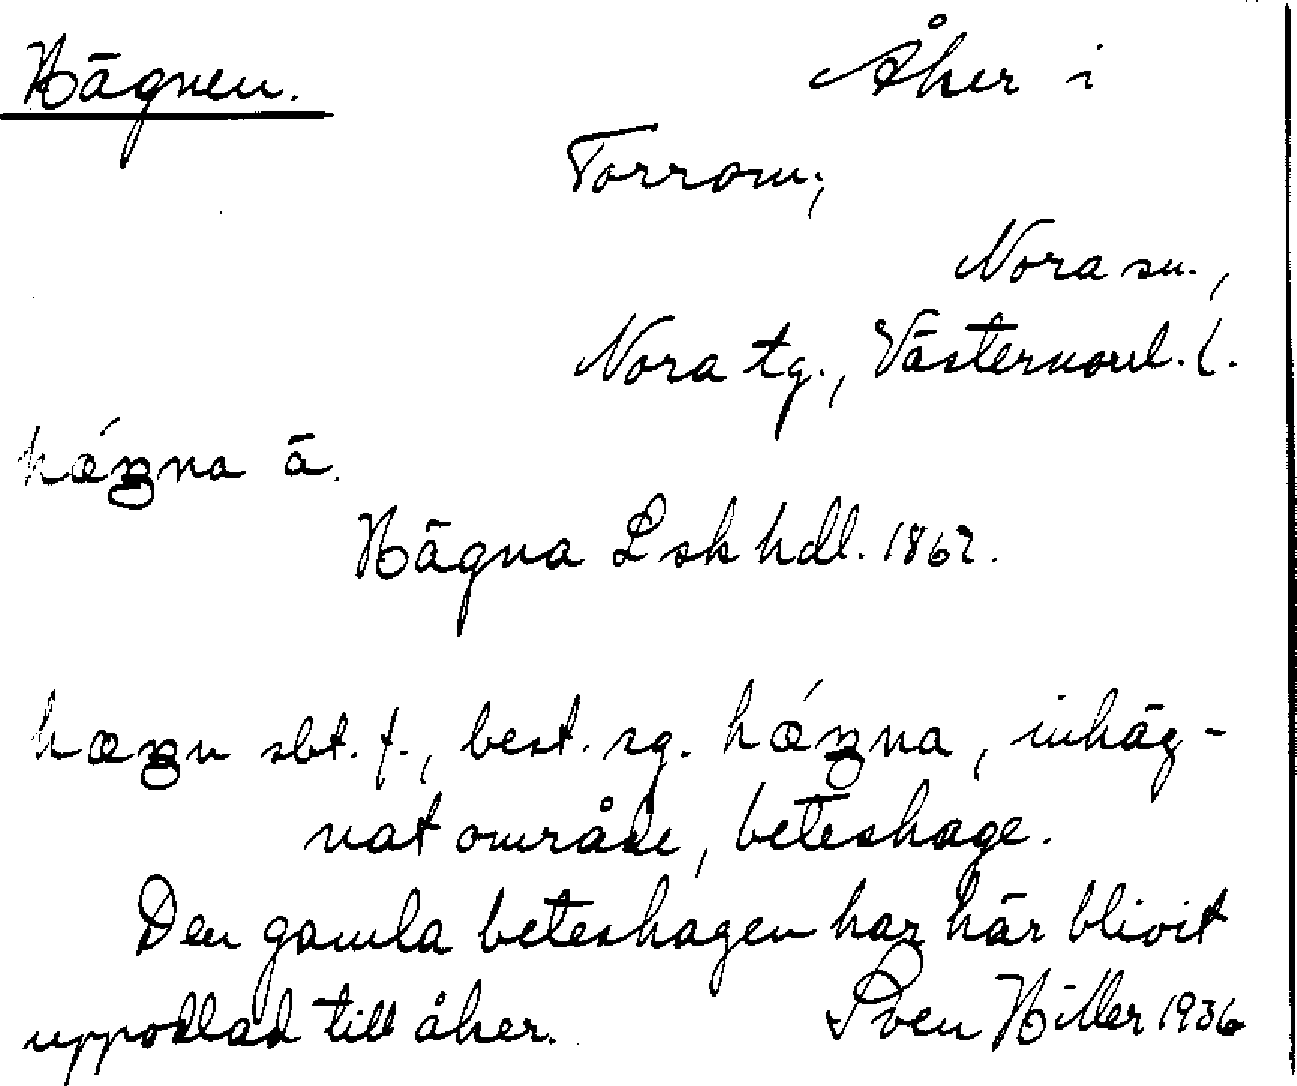 Hägnen. Åker i
Torrom;
Nora sn.,
Nora tg., Västernorrl. l.
hǽŋna ä.
Hägna Lskhdl. 1862.
hæŋn sbt. f., best. sg. hǽŋna, inhäg-
nat område, beteshage.
Den gamla beteshagen har här blivit
uppodlad till åker. Sven Hiller 1936